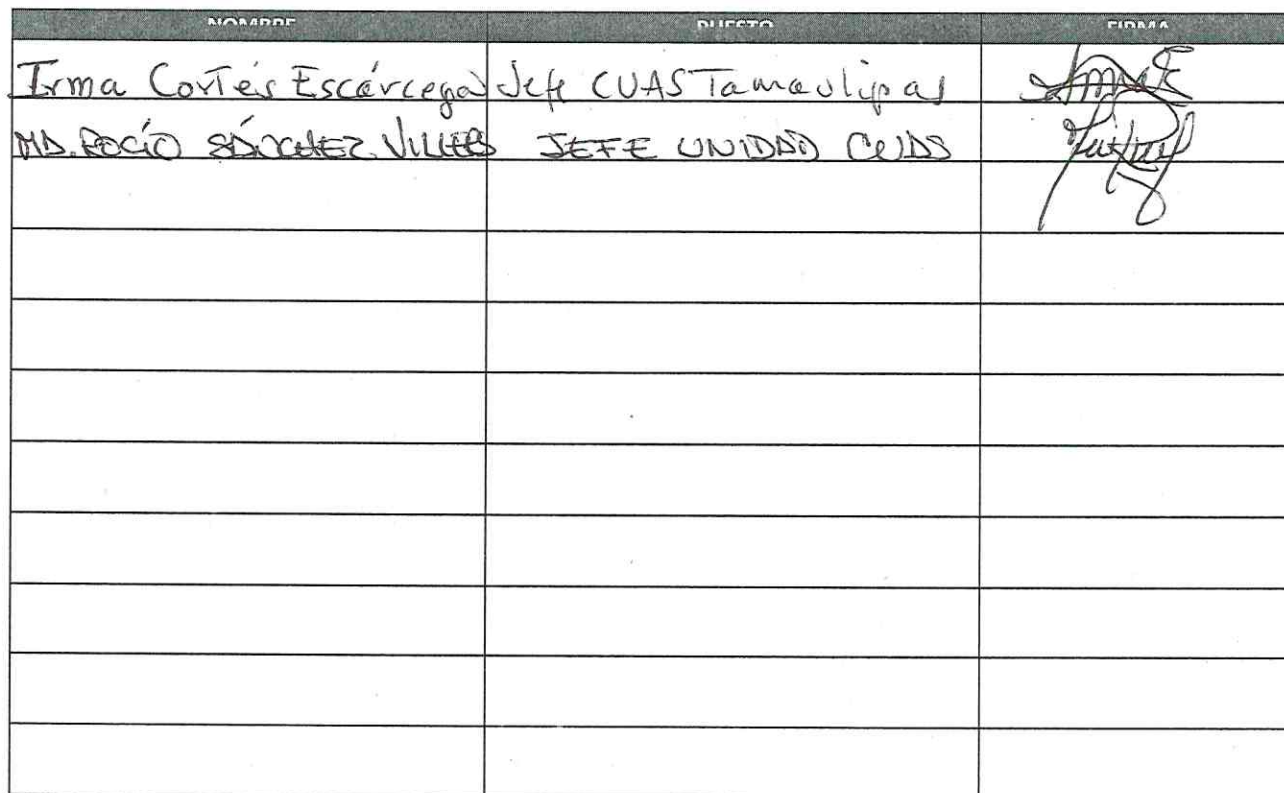 NOMBRE PUESTO FIRMA
Irma Cortés Escárcega Jefe CUAS Tamaulipas
MA. ROCÍO SÁNCHEZ JEFE UNIDAD CUAS